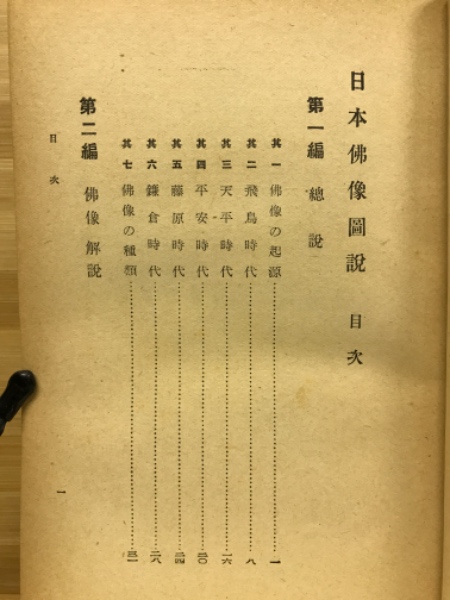 日本佛像圖說 目次
第一編 總說
其一 佛像の起源……一
其二 飛鳥時代……八
其三 天平時代……一六
其四 平安時代……二〇
其五 藤原時代……二四
其六 鎌倉時代……二八
其七 佛像の種類……三一
第二編 佛像解說
目次
一